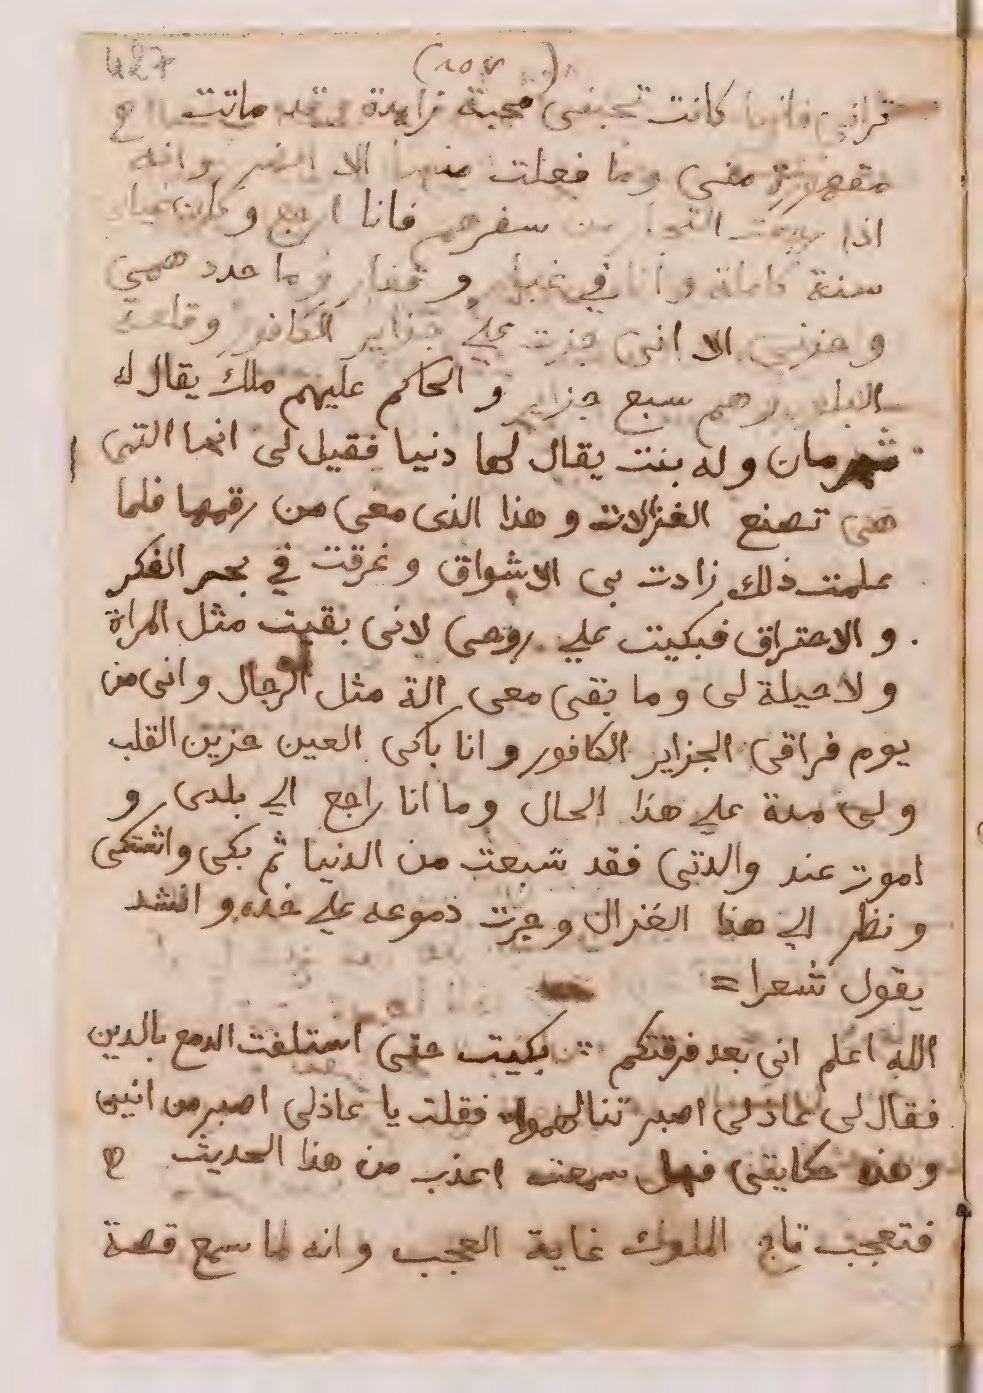 427 (١٥٧)
قرانى فانها كانت تحبنى محبة زايدة وقد ماتت
مقهورة منى وما فعلت منها الا الضر وانه
اذا رجعت التجار من سفرهم فانا ارجع وكان غيابى
سنة كاملة وانا فى غبار وقفار وما جدد همى
وحزنى الا انى جزت على جزاير الكافور وقلعة
البلور وهم سبع جزاير والحاكم عليهم ملك يقال له
شهرمان وله بنت يقال لها دنيا فقيل لى انها التى
هى تصنع الغزالات وهذا الذى معى من رقمها فلما
علمت ذلك زادت بى الاشواق وغرقت فى بحر الفكر
والاحتراق فبكيت على روحى لانى بقيت مثل المراة
ولا حيلة لى وما بقى معى الة مثل الرجال وانى من
يوم فراقى الجزاير الكافور وانا باكى العين حزين القلب
ولى مدة على هذا الحال وما انا راجع الى بلدى و
اموت عند والدتى فقد شبعت من الدنيا ثم بكى واشتكى
ونظر الى هذا الغزال وجرت دموعه على خده وانشد
يقول شعرا =
الله اعلم انى بعد فرقتكم ∴ بكيت حتى استلفت الدمع بالدين
فقال لى عاذلى اصبر تنالهموا فقلت يا عاذلى اصبر من انين
وهذه حكايتى فهل سمعت اعذب من هذا الحديث
فتعجب تاج الملوك غاية العجب وانه لما سمع قصة